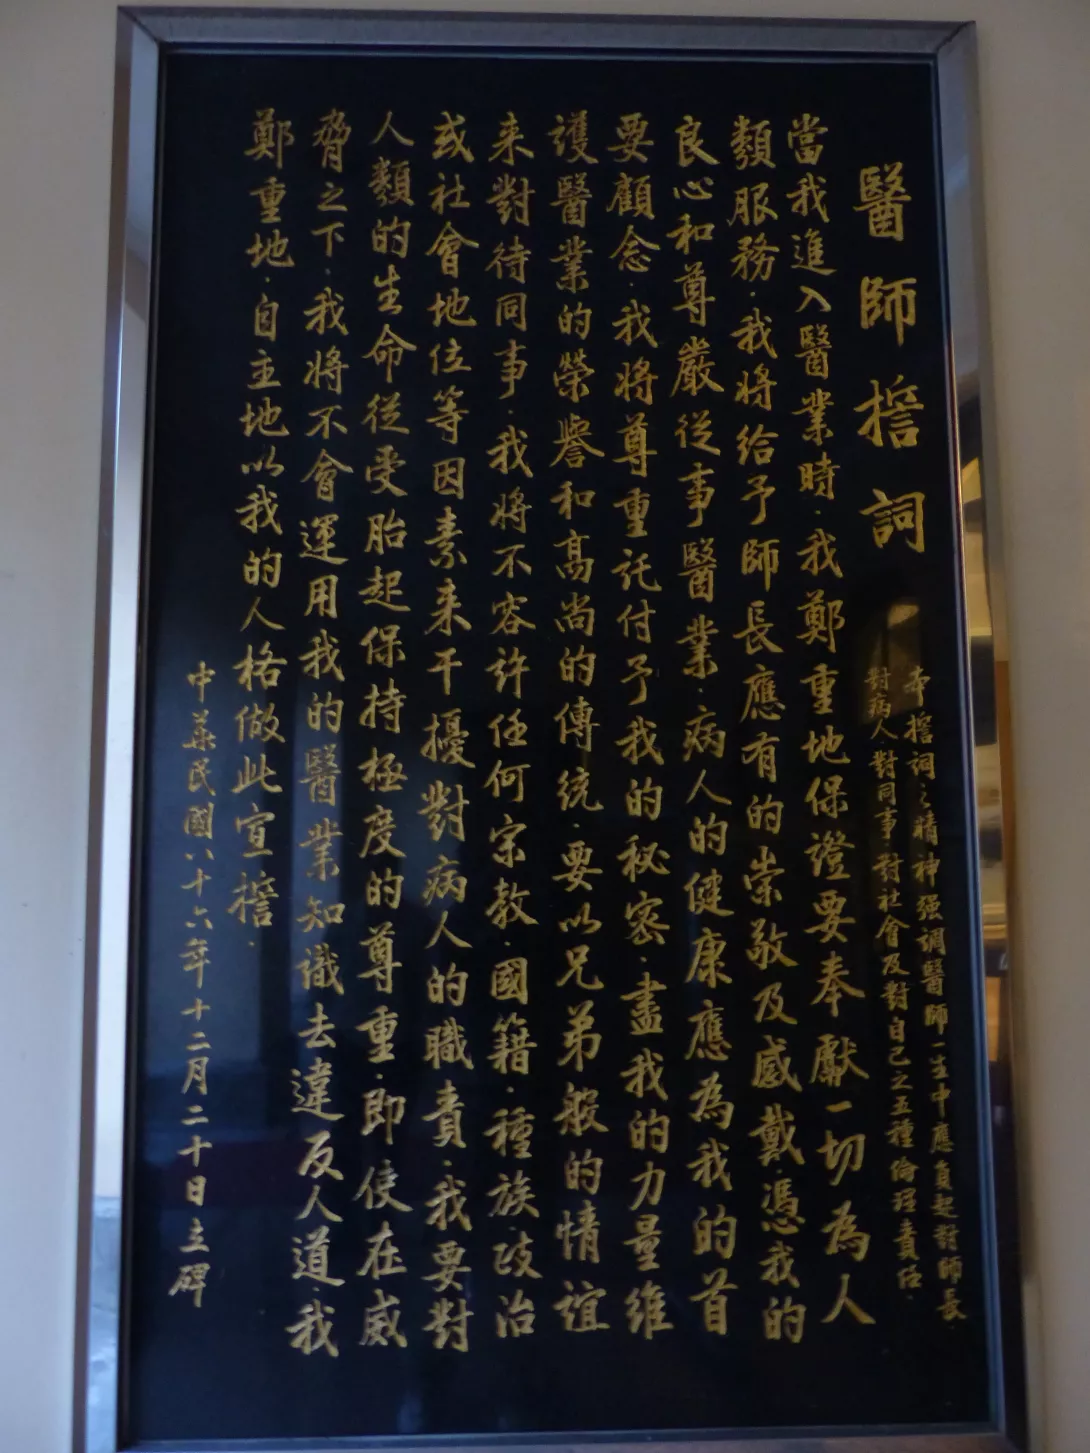 醫師誓詞
本誓詞之精神強調醫師一生中應負起對師長
對病人對同事對社會及對自己之五種倫理責任．
當我進入醫業時．我鄭重地保證要奉獻一切為人
類服務．我將給予師長應有的崇敬及感戴．憑我的
良心和尊嚴從事醫業．病人的健康應為我的首
要顧念．我將尊重託付予我的秘密．盡我的力量維
護醫業的榮譽和高尚的傳統．要以兄弟般的情誼
来對待同事．我將不容許任何宗教．國籍．種族．政治
或社會地位等因素来干擾對病人的職責．我要對
人類的生命從受胎起保持極度的尊重．即使在威
脅之下．我將不會運用我的醫業知識去違反人道．我
鄭重地．自主地以我的人格做此宣誓．
中華民國八十六年十二月二十日立碑